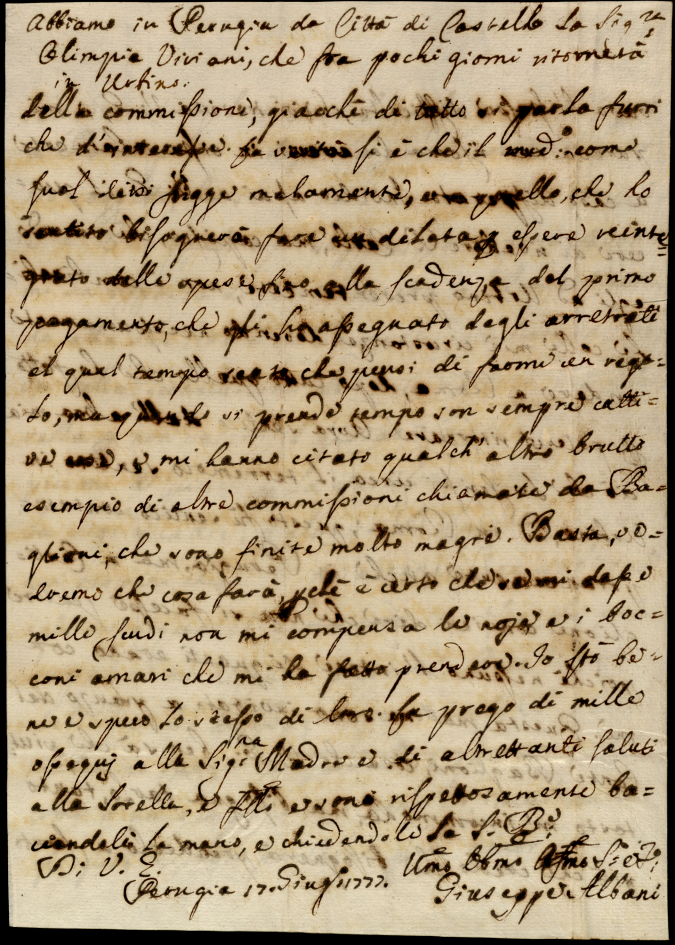 Abbiamo in Perugia da Città di Castello la Sig.ra
Olimpia Viviani, che fra pochi giorni ritornerà
in Urbino.
della commissione, giacchè di tutto si parla fuori
che d'interesse. La verità si è che il med.o come
suol dirsi legge malamente, e a quello, che ho
sentito bisognerà fare un di lata p essere reinte=
grato delle spese fino alla scadenza del primo
pagamento, che gli ho assegnato degli arretrati
al qual tempo sento che pensi di farmi un rega=
lo, ma quando si prende tempo son sempre catti=
ve cose, e mi hanno citato qualch'altro brutto
esempio di altre commissioni chiamate da Ba=
glioni, che sono finite molto magre. Basta, ve=
dremo che cosa farà, pchè è certo che se mi dasse
mille scudi non mi compensa le noje e i boc=
coni amari che mi ha fatto prendere. Io stò be=
ne e spero lo stesso di loro. La prego di mille
ossequj alla Sig.ra Madre e di altrettanti saluti
alla Sorella, e Flli e sono rispettosamente ba=
ciandole la mano, e chiedendole la S. B.e
Di V. E.
Perugia 17. Giug. 1777.
Umo Obmo Affmo
Giuseppe Albani